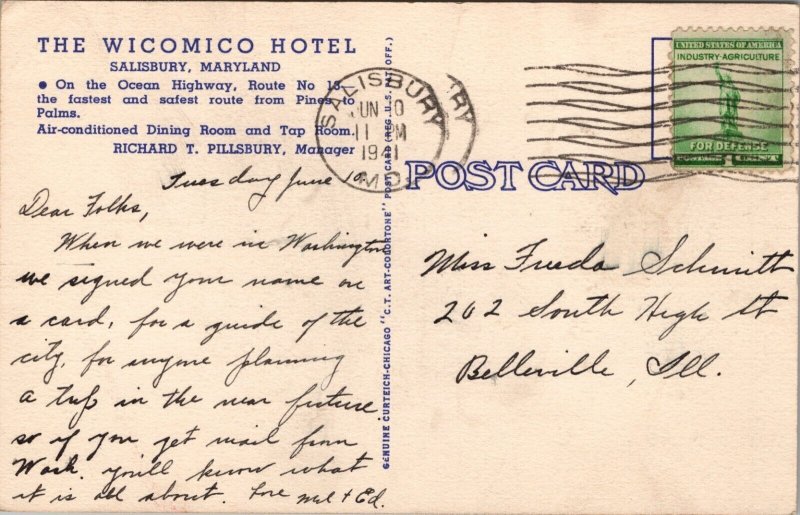 THE WICOMICO HOTEL
SALISBURY, MARYLAND
● On the Ocean Highway, Route No 13
the fastest and safest route from Pines to
Palms.
Air-conditioned Dining Room and Tap Room.
RICHARD T. PILLSBURY, Manager
Tuesday June 10
Dear Folks,
When we were in Washington
we signed your name on
a card, for a guide of the
city, for anyone planning
a trip in the near future
so if you get mail from
Wash. you'll know what
it is all about. Love Mel + Ed.
GENUINE CURTEICH-CHICAGO "C.T. ART-COLORTONE" POST CARD (REG. U.S. PAT. OFF.)
SALISBURY
JUN 10
11 PM
1941
MD.
RY
UNITED STATES OF AMERICA
INDUSTRY·AGRICULTURE
FOR DEFENSE
POST CARD
Miss Frieda Schmitt
202 South High St
Belleville, Ill.